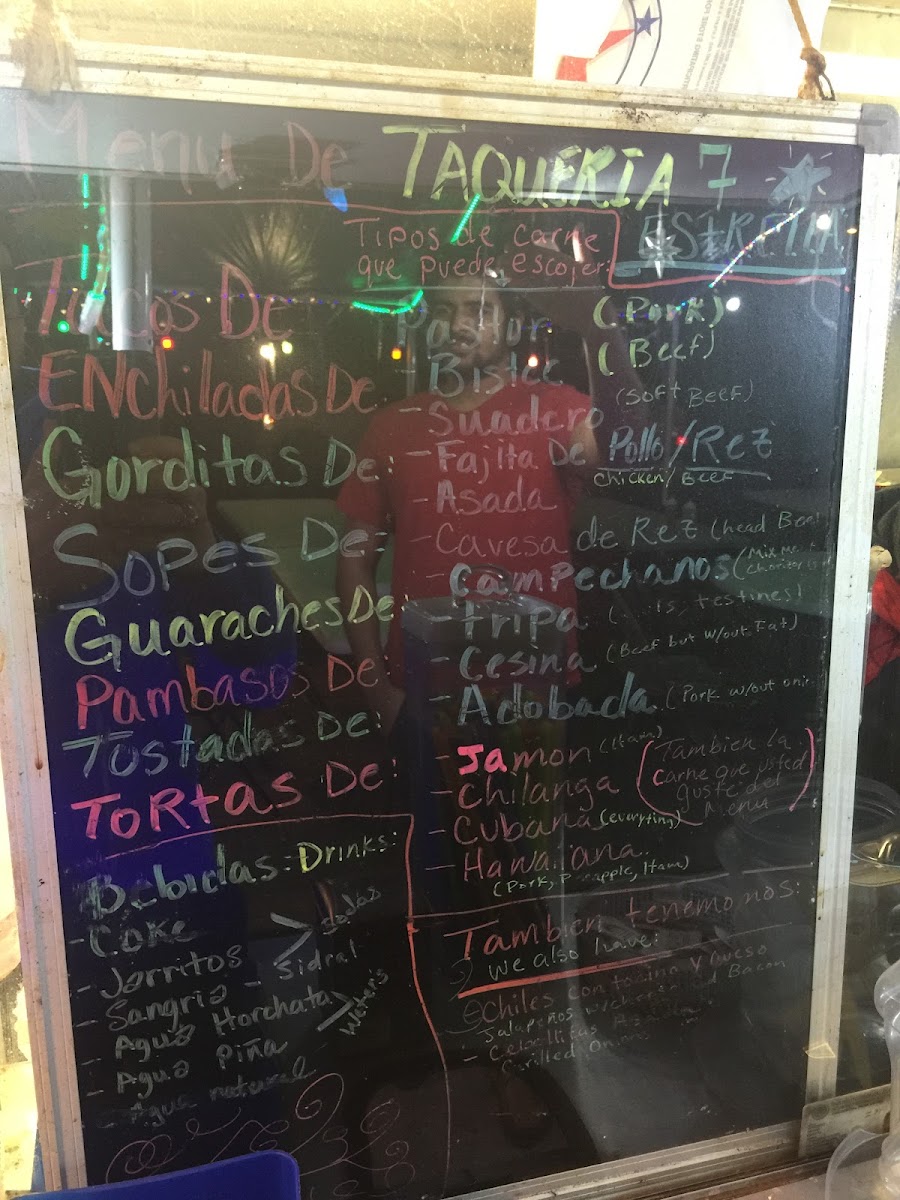 Menu De TAQUERIA 7
ESTRELLA
Tipos de carne
que puede escojer:
Tacos De
ENchiladas De:
Gorditas De:
Sopes De:
Guaraches De:
Pambasos De:
Tostadas De:
Tortas De:
Pastor (Pork)
- Bistec (Beef)
- Suadero (Soft Beef)
- Fajita De Pollo/Rez
Chicken/Beef
- Asada
- Cavesa de Rez (head Beef
- Campechanos (Mix
- tripa
- Cesina (Beef but w/out Fat)
- Adobada (Pork w/out
- Jamon (Ham)
- Chilanga
- Cubana (everything)
- Hawaiana
(Pork, Pineapple, Ham)
(Tambien la
carne que usted
guste del
Menu)
Bebidas: Drinks:
- Coke
- Jarritos
- Sangria - Sidral
Sodas
- Agua Horchata
- Agua Piña
- Agua natural
Waters
Tambien tenemonos:
We also have:
Chiles con tocino y queso
Jalapeños w/cheese and Bacon
- Cebollitas
Grilled Onions